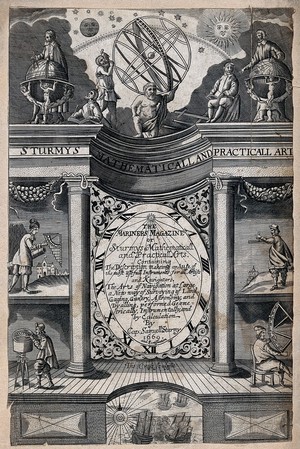 STURMYS MATHEMATICALL AND PRACTICALL ART
THE
MARINERS MAGAZINE
or
Sturmys Mathematicall
and Practicall Arts.
Containing
The Description making and use of
the most usefull Instruments for all Artists
and Navigators
The Arts of Navigation at Large
a New way of Surveying of Land,
Gauging, Gunnery, Astronomy, and
Dyalling, performed Geome-
trically, Instrumentally, and
by Calculation.
By
Cap. Samuell Sturmy
1669